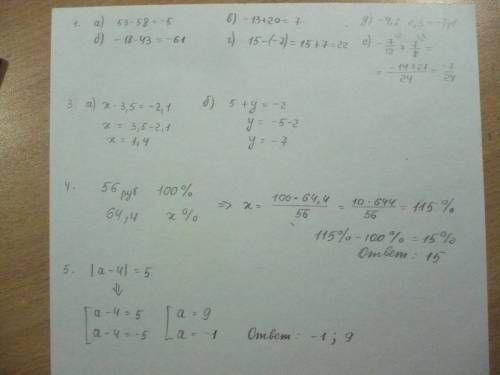 1. а) 53-58=-5   в) -13+20=7   д)
б) -18-43=-61   г) 15-(-7)=15+7=22   е) -7/12 + 7/8 =
= (-14+21)/24 = -7/24
3. а) x-3,5=-2,1   б) 5+y=-2
x=3,5-2,1   y=-5-2
x=1,4   y=-7
4. 56 руб 100%
64,4 x%   ⇒ x= (100·64,4)/56 = (10·644)/56 = 115%
115%-100%=15%
Ответ: 15
5. |a-4|=5
⇓
[ a-4=5   [ a=9
[ a-4=-5   [ a=-1   Ответ: -1; 9